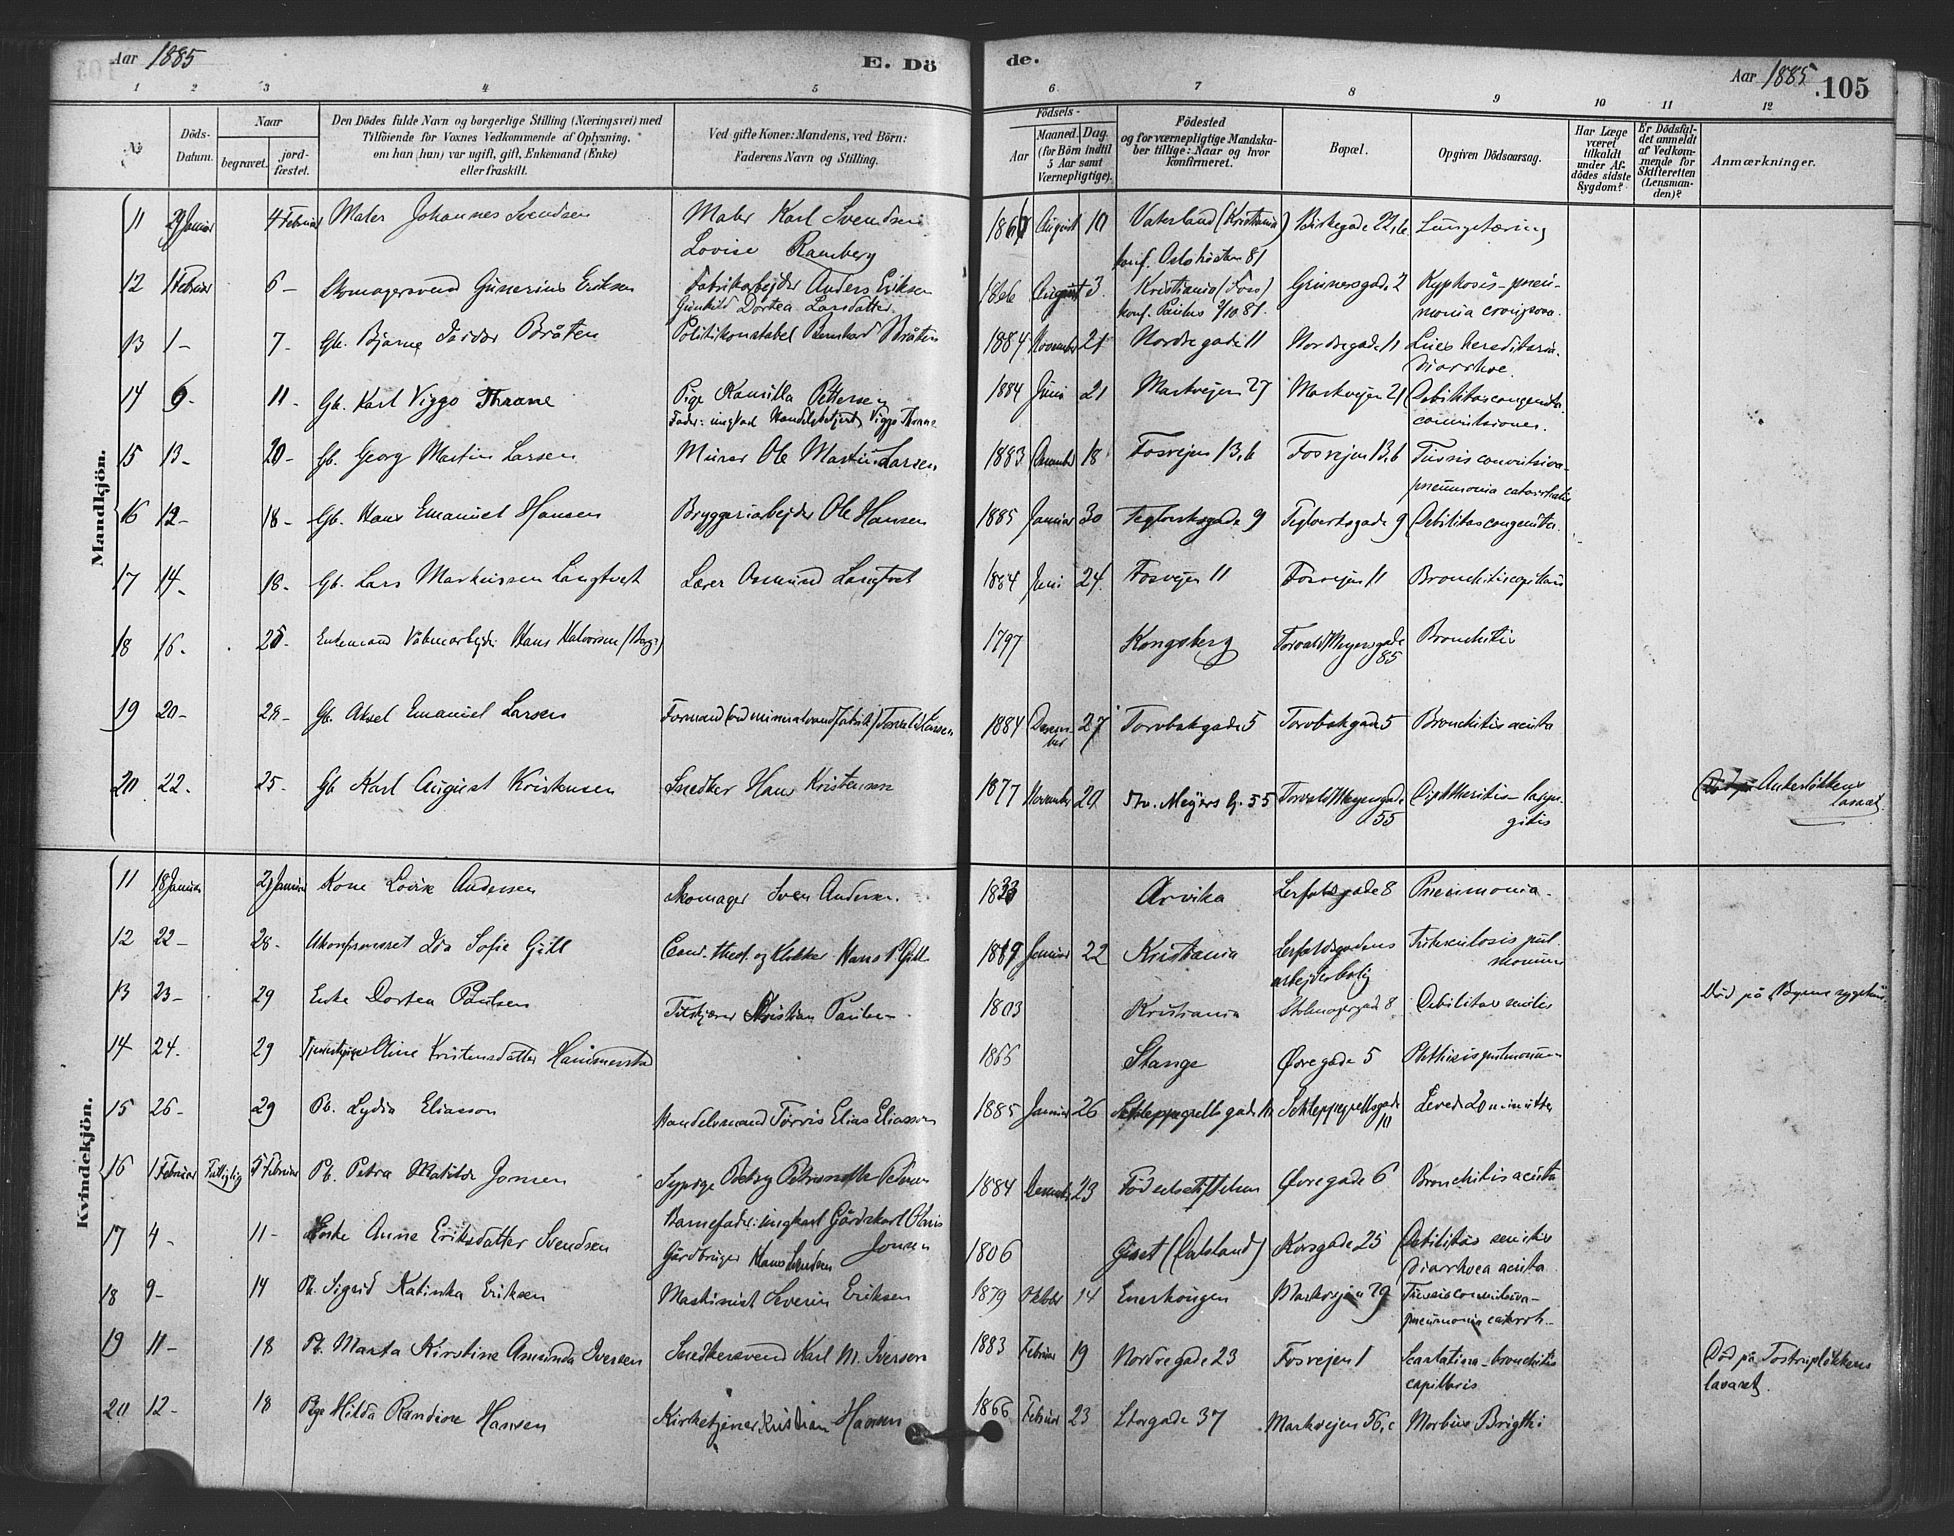 Aar 1885
E. Dö
de.
Aar 1885. 105
1 2 3 4 5 6 7 8 9 10 11 12
No
Döds-Datum.
Naar
begravet.
jord-fæstet.
Den Dödes fulde Navn og borgerlige Stilling (Næringsvei) med
Tilföiende for Voxnes Vedkommende af Oplysning.
om han (hun) var ugift, gift, Enkemand (Enke)
eller fraskilt.
Ved gifte Koner: Mandens, ved Börn:
Faderens Navn og Stilling.
Födsels-
Aar
Maaned. Dag.
(for Börn indtil
5 Aar samt
Værnepligtige).
Födested
og for værnepligtige Mandska-
ber tillige: Naar og hvor
konfirmeret.
Bopæl.
Opgiven Dödsaarsag.
Har Læge
været
tilkaldt
under Af-
dödes sidste
Sygdom?
Er Dödsfal-
det anmeldt
af Vedkom-
mende for
Skifteretten
(Lensman-
den)?
Anmærkninger.
Mandkjön.
11 Januar 4 Februar Maler Johannes Svendsen Maler Karl Svendsen August 10 Vaterland (Kristiania) Lungetæring
Lovise Ramberg konf. Oslo 81
12 1 Februar 6 – Skomagersvend Gunerius Eriksen Fabrikarbejder Anders Eriksen 1866 August 3. Kristiania (Fos) Grünersgade 2 Kyphosis – pneu-
Gunhild Dortea Larsdatter. konf. Paulus 81. monia crouposa.
13 1 – 7 – Gb. Bjarne Braaten Politikonstabel Bernhard Bråten 1884 November 21 Nordregade 11 Nordregade 11 Lues hereditaria.
Diarrhoe.
14 6 – 11 – Gb. Karl Viggo Thrane Pige Kamilla Pettersen 1884 Juni 21 Markvejen 27 Markvejen 21 Debilitas congenita.
Fader: ungkarl Handelsbetjent Viggo Thrane convulsiones.
15 13 – 20 – Gb. Georg Martin Larsen Murer Ole Martin Larsen 1883 December 18 Fosvejen 13,b Fosvejen 13,b Tussis convulsiva –
pneumonia catarrhalis
16 12 – 18 – Gb. Hans Emanuel Hansen Bryggeriarbejder Ole Hansen 1885 Januar 30 Teglverksgade 9 Teglverksgade 9 Debilitas congenita.
17 14 – 18 – Gb. Lars Markussen Langtvet Lærer Asmund Langtvet 1884 Juni 24. Fosvejen 11 Fosvejen 11 Bronchitis capillaris
18 16 – 25 – Enkemand Våbenarbejder Hans Halvorsen (Berg) 1797 Kongsberg Torvald Meyersgade Bronchitis
85
19 20 – 28 – Gb. Aksel Emanuel Larsen Formand (ved mineralvandfabrik) Torvald Larsen 1884 Decem- 27 Torvbakgade 5 Torvbakgade 5 Bronchitis acuta
ber
20 22 – 25 – Gb Karl August Kristensen Snedker Hans Kristensen 1877 November 20 Th. Meyers G. 55 Torvald Meyersgade Diphtheritis – laryn-
55 gitis Ankerløkkens
lasaret.
Kvindekjön.
11 18 Januar Januar Kone Lovise Andersen Skomager Sven Andersen. 1833 Arvika Lerfosgade 8 Pneumonia –
12 22 – 28 – Ukonfirmeret Ida Sofie Gill Cand. theol. og Klokker Hans P. Gill Januar 22 Kristiania Tuberculosis pul-
arbejderbolig monum
13 23 – 29 Enke Dortea Paulsen Kristian Paulsen 1803 Kristiania Skolmagergade 8 Debilitas senilis Død på Byens sygehus.
14 24 – 29 Tjenestepige Oline Kristensdatter Hammerstad 1866 Stange Øvregade 5 Phthisis pulmonum
15 26 – 29 Pb. Lydia Eliasson Handelsmand Elias Eliasson 1885 Januar 26 Schleppegrellsgade 10 Schleppegrellsgade Levede 20 minutter
10
16 1 Februar Fattiglig 5 Februar Pb. Petra Matilde Jonsen Sypige Betzy Petersen 1884 December 23 Fødselsstiftelsen Øvregade 6 Bronchitis acuta
Barnefader: ungkarl Gårdskarl Jonsen
17 4 – 11 – Enke Anne Eriksdatter Svendsen Gårdbruger Hans Svendsen 1806 (Dalsland) Korsgade 25 Debilitas senilis
Diarrhoea acuta
18 9 – 14 Pb. Sigrid Katinka Eriksen Maskinist Severin Eriksen 1879 Oktober 14 Enerhaugen Markvejen 29 Tussis convulsiva –
pneumonia catarrh.
19 11 – 18 Pb. Marta Kirstine Amunda Iversen Snedkersvend Karl M. Iversen 1883 Februar 19 Nordregade 23 Fosvejen 1 Scarlatina – bronchitis
capillaris Død på Tostrupløkkens
lasaret.
20 12 – 18 Pige Hilda Randine Hansen Kirketjener Kristian Hansen 1866 Februar 23 Storgade 37 Markvejen 56,c Morbus Brigthi